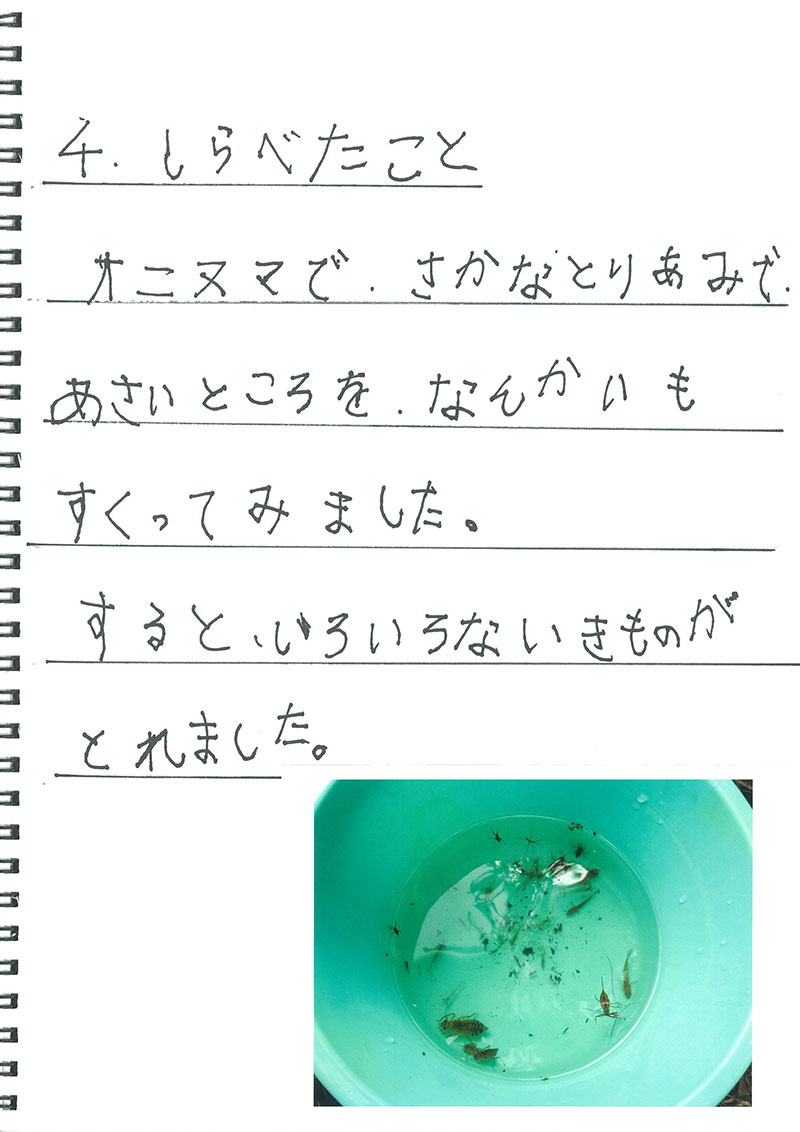 4. しらべたこと
オニヌマで、さかなとりあみで、
あさいところを、なんかいも
すくってみました。
すると、いろいろないきものが
とれました。